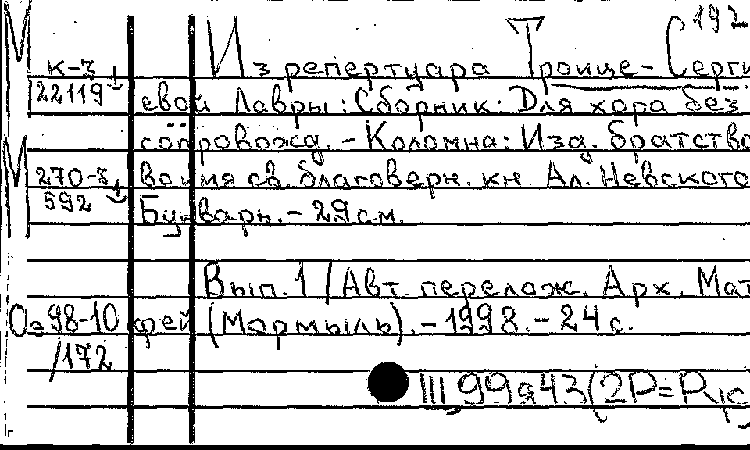 192
М к-3 Из репертуара Троице-Серги
22119 евой Лавры: Сборник: Для хора без
сопровожд. - Коломна: Изд. братство
М 270-3 во имя св. благоверн. кн Ал. Невского
592 Букварь. - 29 см.
Вып. 1 / Авт перелож. Арх. Мат
Оэ98-10 фей (Мормыль). - 1998. - 24 с.
/172
Щ99я43(2Р=Рус